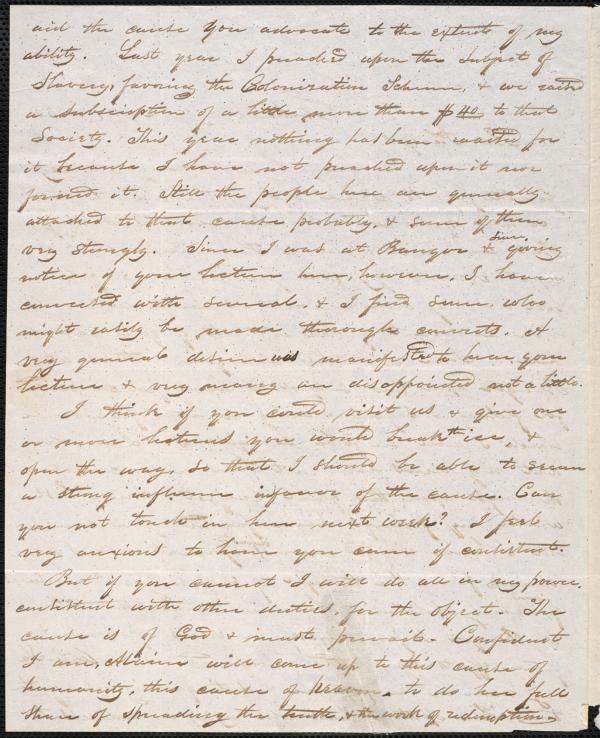 aid the cause you advocate to the extent of my
ability. Last year I preached upon the subject of
Slavery, favoring the Colonization Scheme, & we raised
a subscription of a little more than $40 to that
Society. This year nothing has been raised for
it because I have not preached upon it nor
favored it. Still the people here are generally
attached to that cause probably, & some of them
very strongly. Since I was at Bangor & since, giving
notice of your lecture here, however, I have
conversed with several, & I find some, who
might easily be made thorough converts. A
very general desire was manifested to hear your
lecture & very many are disappointed not a little.
I think if you could visit us & give one
or more lectures you would break the ice, &
open the way, so that I should be able to secure
a strong influence in favor of the cause. Can
you not touch in here next week? I feel
very anxious to have you come if consistent.
But if you cannot I will do all in my power,
consistent with other duties, for the object. The
cause is of God & must prevail. Confident
I am, Maine will come up to this cause of
humanity, this cause of heaven, to do her full
share of spreading the truth, & the work of redemption.